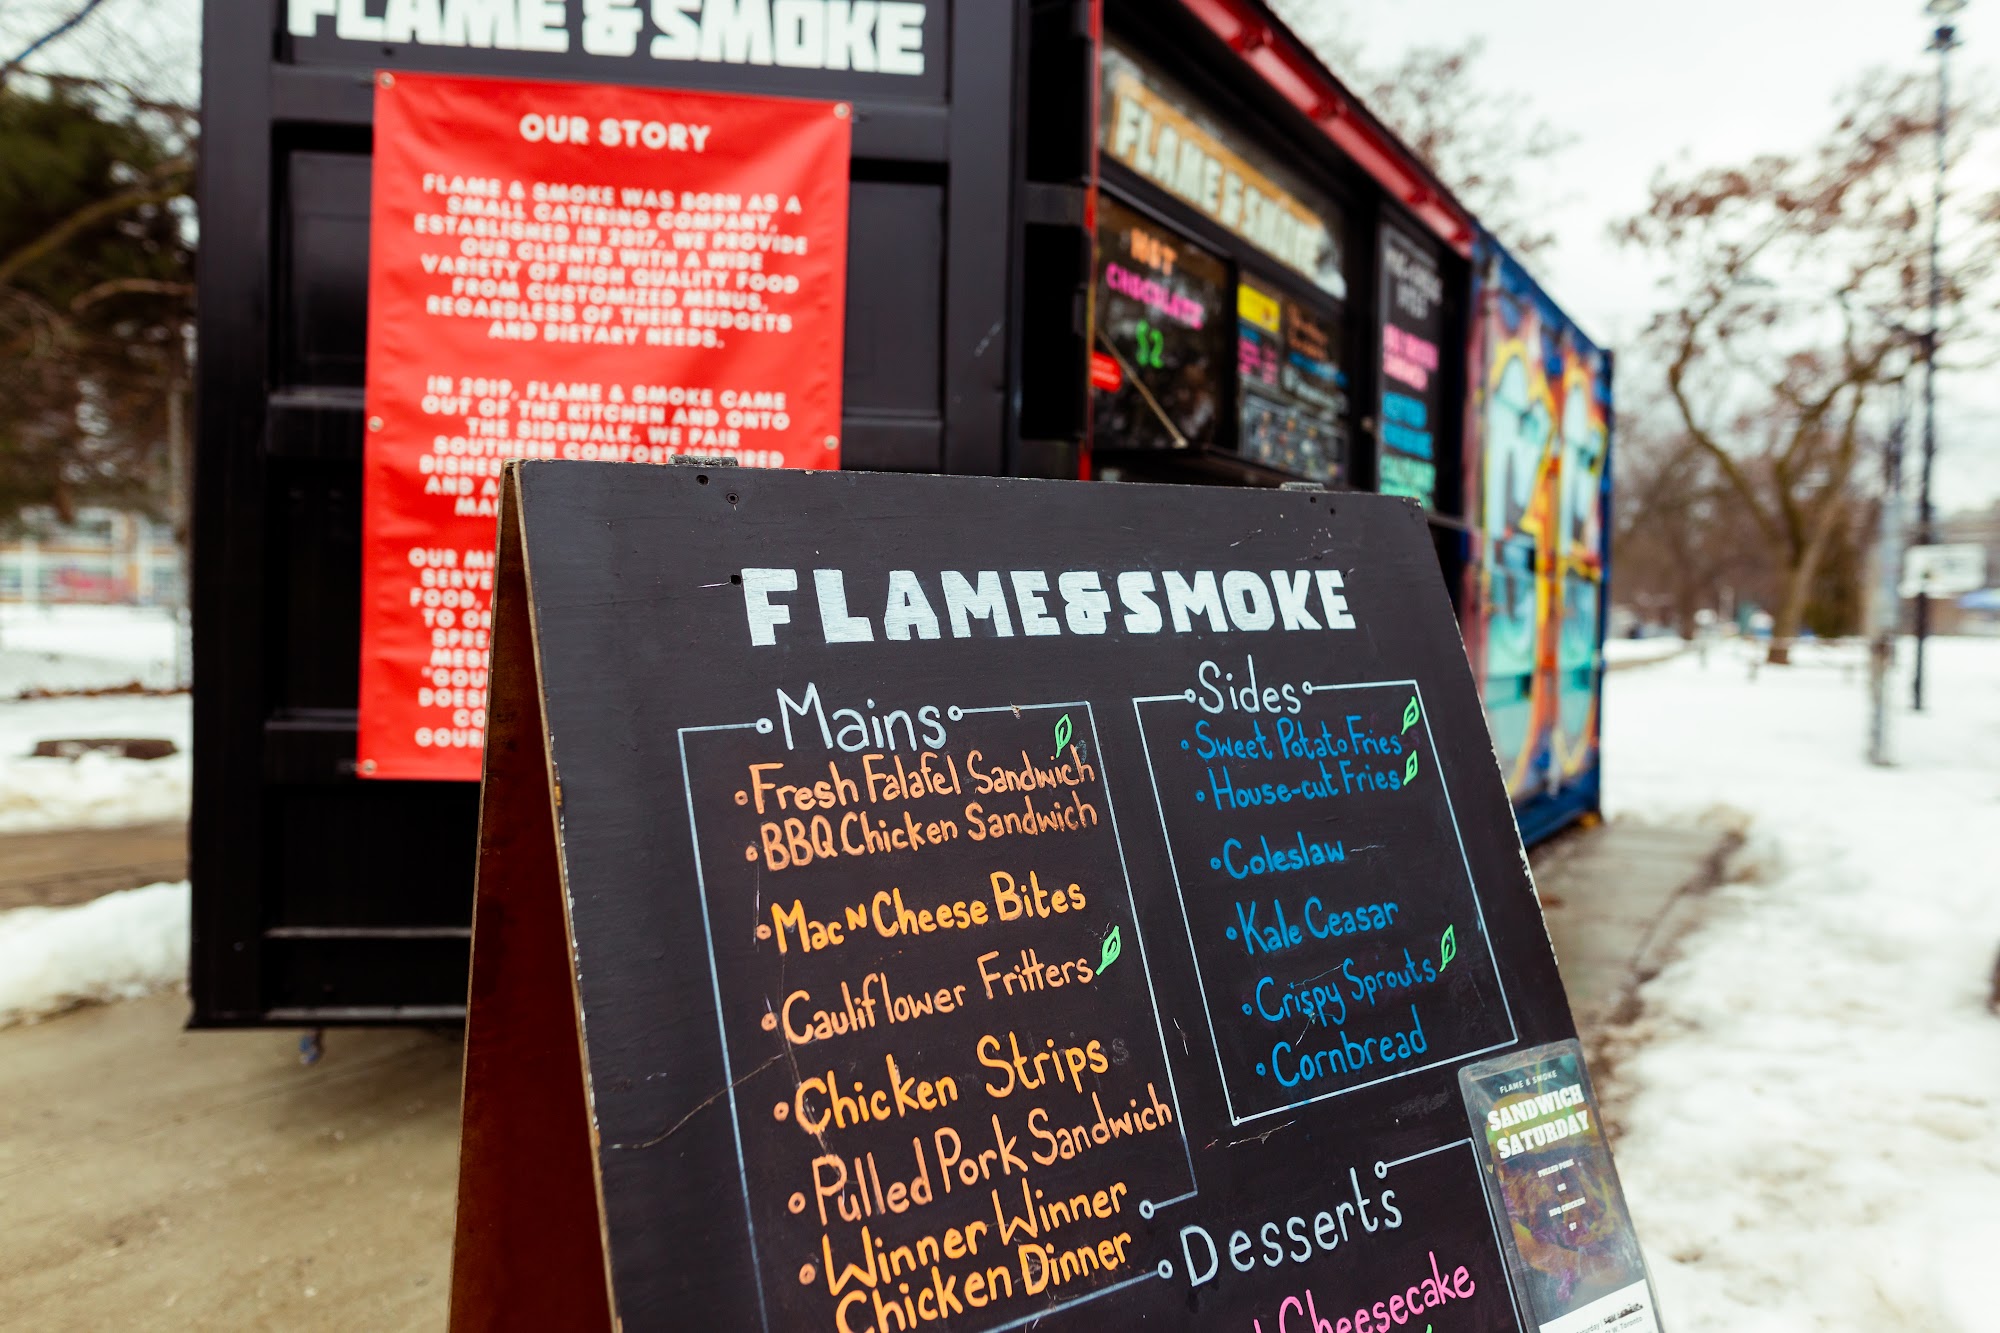 FLAME & SMOKE
OUR STORY
FLAME & SMOKE WAS BORN AS A
SMALL CATERING COMPANY,
ESTABLISHED IN 2017. WE PROVIDE
OUR CLIENTS WITH A WIDE
VARIETY OF HIGH QUALITY FOOD
FROM CUSTOMIZED MENUS,
REGARDLESS OF THEIR BUDGETS
AND DIETARY NEEDS.
IN 2019, FLAME & SMOKE CAME
OUT OF THE KITCHEN AND ONTO
THE SIDEWALK. WE PAIR
SOUTHERN COMFORT
DISHES
AND
OUR
SERVE
FOOD,
TO
FLAME & SMOKE
HOT
CHOCOLATE
$2
FLAME&SMOKE
Mains
Fresh Falafel Sandwich
BBQ Chicken Sandwich
Mac N Cheese Bites
Cauliflower Fritters
Chicken Strips
Pulled Pork Sandwich
Winner Winner
Chicken Dinner
Sides
Sweet Potato Fries
House-cut Fries
Coleslaw
Kale Ceasar
Crispy Sprouts
Cornbread
Desserts
Cheesecake
FLAME & SMOKE
SANDWICH
SATURDAY
PULLED PORK
OR
BBQ CHICKEN
$7